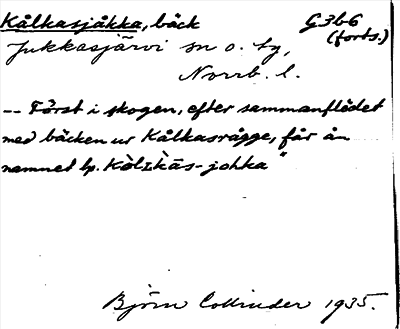 Kålkasjåkka, bäck G3b6
Jukkasjärvi sn o. tg, (forts.)
Norrb. l.
-- Först i skogen, efter sammanflödet
med bäcken ur Kålkasrågge, får ån
namnet lp. Kòlıkas-johka"
Björn Collinder 1935.